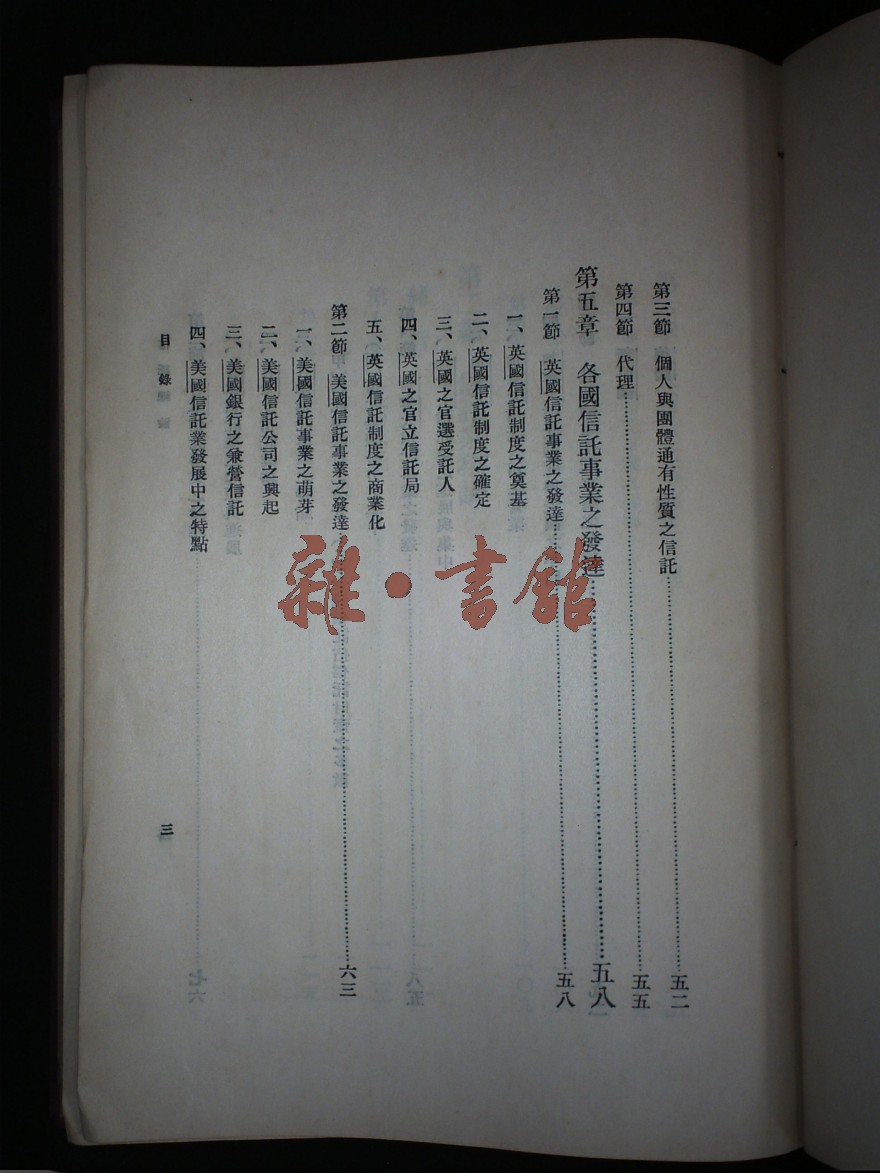 第三節　個人與團體通有性質之信託……五二
第四節　代理……五五
第五章　各國信託事業之發達……五八
第一節　英國信託事業之發達……五八
一、英國信託制度之奠基
二、英國信託制度之確定
三、英國之官選受託人
四、英國之官立信託局
五、英國信託制度之商業化
第二節　美國信託事業之發達……六三
一、美國信託事業之萌芽
二、美國信託公司之興起
三、美國銀行之兼營信託
四、美國信託業發展中之特點
目錄
三
雜·書館